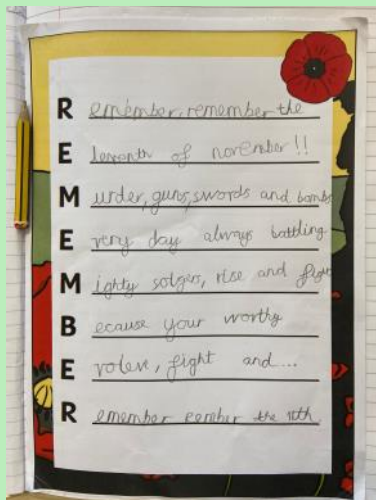 Remember, remember the
Elevnth of november!!
Murder, guns, swords and bombs
Every day always battling
Mighty solgers, rise and fight
Because your worthy
Evolve, fight and...
Remember the